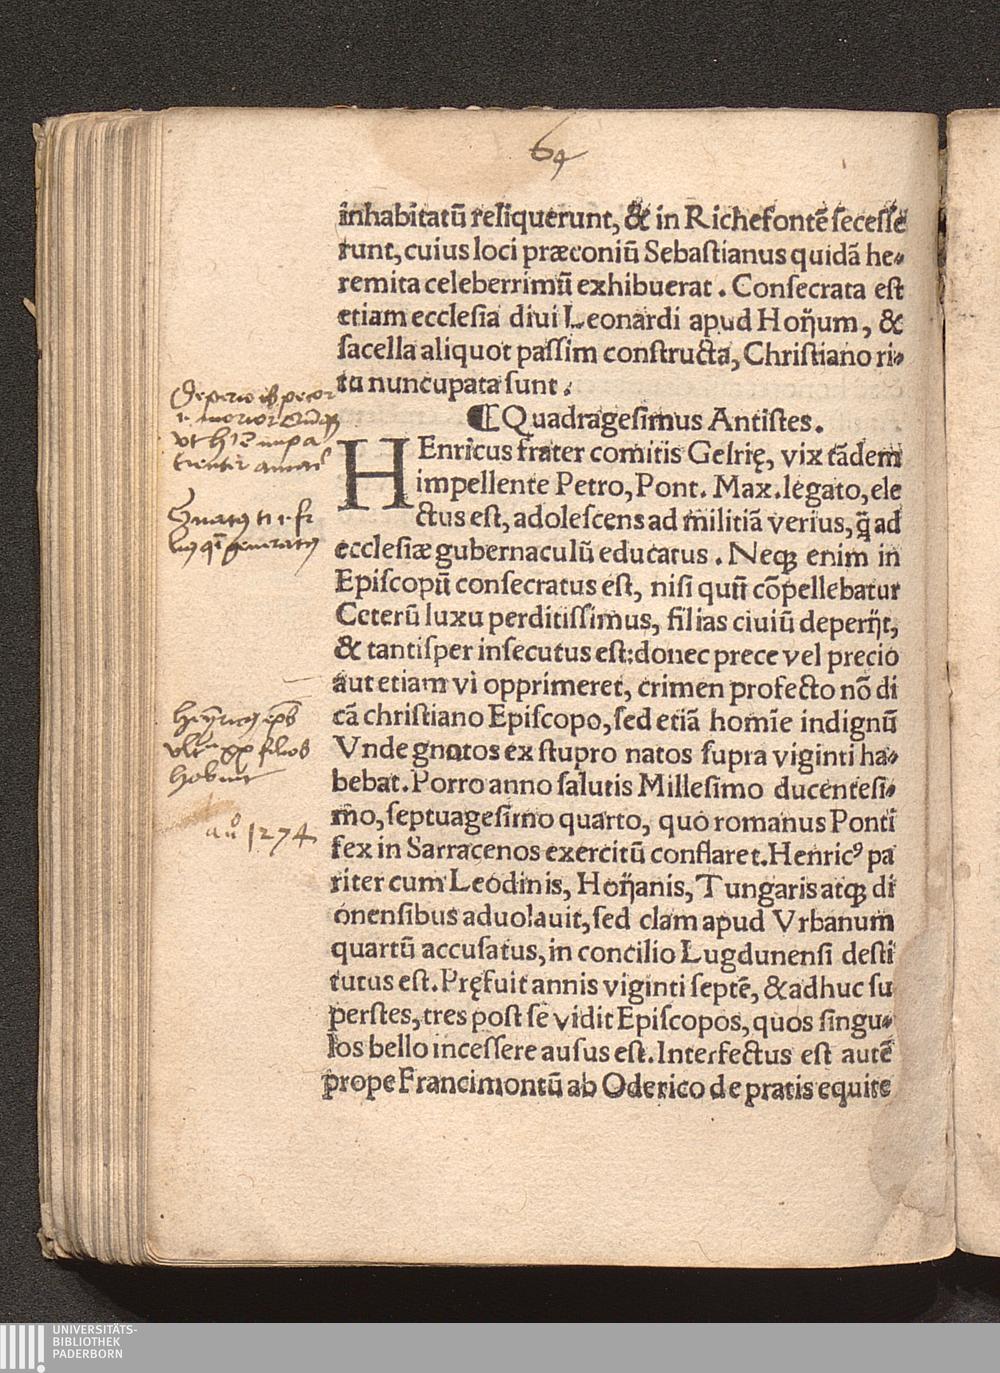 64
inhabitatū reliquerunt, & in Richefontē secesse
runt, cuius loci præconiū Sebastianus quidā he⸗
remita celeberrimū exhibuerat. Consecrata est
etiam ecclesia diui Leonardi apud Hoÿum, &
sacella aliquot passim constructa, Christiano ri⸗
tu nuncupata sunt.
¶ Quadragesimus Antistes.
HEnricus frater comitis Gelrię, vix tādem
impellente Petro, Pont. Max. legato, ele
ctus est, adolescens ad militiā verius, q̄ ad
ecclesiæ gubernaculū educatus. Neqꝫ enim in
Episcopū consecratus est, nisi qūū cōpellebatur
Ceterū luxu perditissimus, filias ciuiū deperijt,
& tantisper insecutus est: donec prece vel precio
aut etiam vi opprimeret, crimen profecto nō di
cā christiano Episcopo, sed etiā homīe indignū
Vnde gnotos ex stupro natos supra viginti ha⸗
bebat. Porro anno salutis Millesimo ducentesi⸗
mo, septuagesimo quarto, quo romanus Ponti
fex in Sarracenos exercitū conflaret. Henricꝰ pa
riter cum Leodinis, Hoÿanis, Tungaris atqꝫ di
onensibus aduolauit, sed clam apud Vrbanum
quartū accusatus, in concilio Lugdunensi desti
tutus est. Pręfuit annis viginti septē, & adhuc su
perstes, tres post se vidit Episcopos, quos singu⸗
los bello incessere ausus est. Interfectus est autē
prope Francimontū ab Oderico de pratis equite
filios
aº 1274
UNIVERSITÄTS-
BIBLIOTHEK
PADERBORN